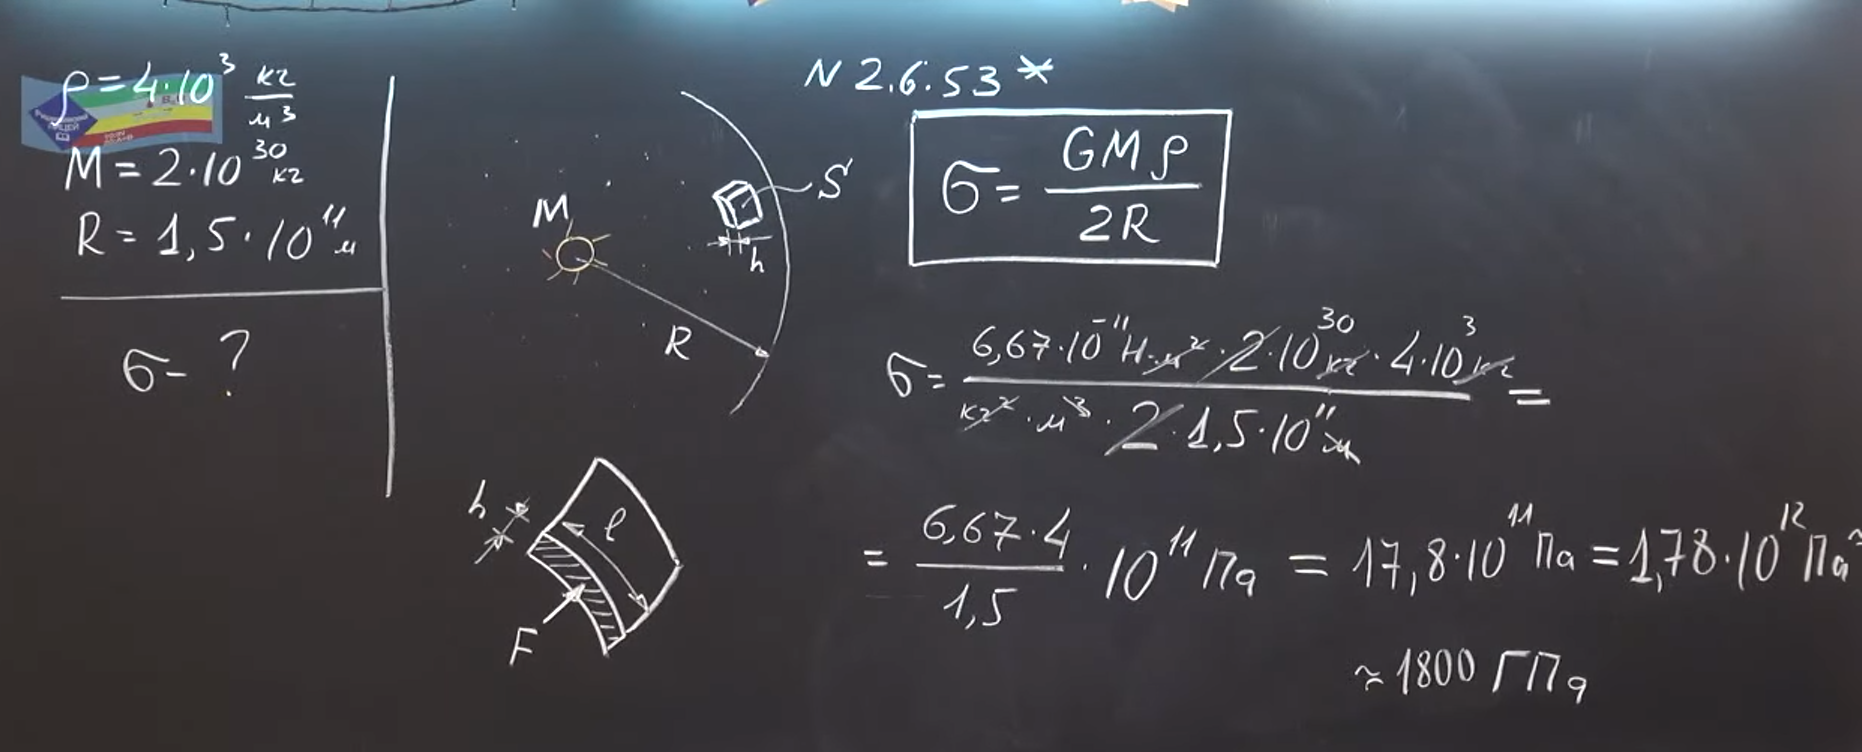 ρ = 4·10³ кг/м³
M = 2·10³⁰ кг
R = 1,5·10¹¹ м
σ - ?
N 2.6.53*
M
S
h
R
σ = GMρ / 2R
σ = 6,67·10⁻¹¹ Н·м²·2·10³⁰ кг·4·10³ кг / кг²·м³·2·1,5·10¹¹ м =
= 6,67·4 / 1,5 · 10¹¹ Па = 17,8·10¹¹ Па = 1,78·10¹² Па ≈
≈ 1800 ГПа
h
l
F